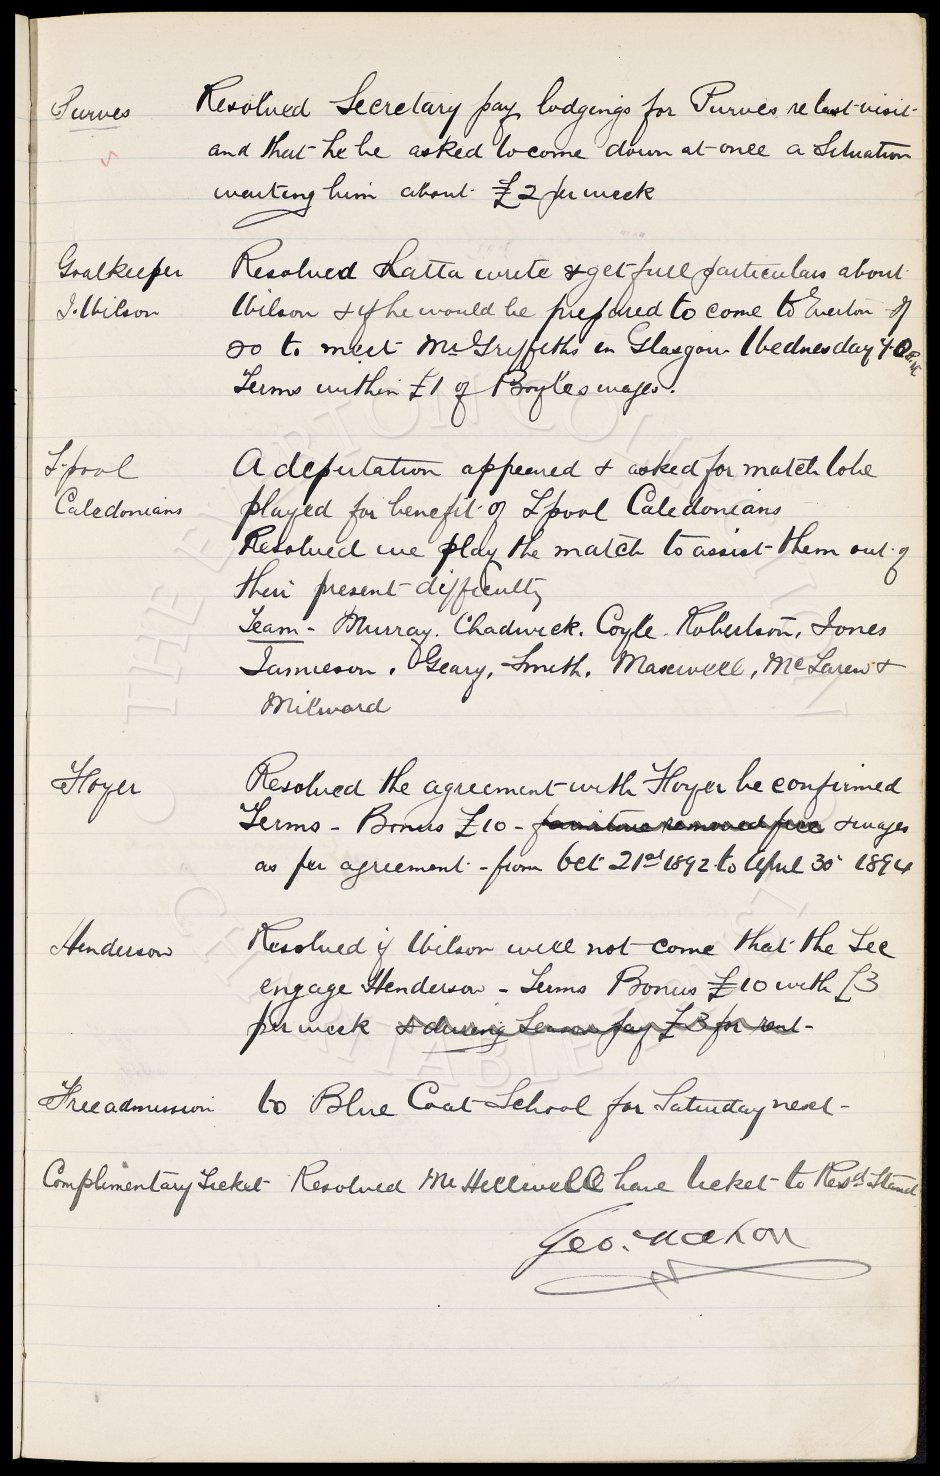 Purves Resolved Secretary pay lodgings for Purves re last visit
and that he be asked to come down at once a Situation
waiting him about £2 per week
Goalkeeper Resolved Latta write & get full particulars about
J. Wilson Wilson & if he would be prepared to come to Everton if
so to meet Mr Griffiths in Glasgow Wednesday
Terms within £1 of Boyles wages.
L'pool A deputation appeared & asked for match to be
Caledonians played for benefit of Lpool Caledonians
Resolved we play the match to assist them out of
their present difficulty
Team - Murray. Chadwick. Coyle. Robertson. Jones
Jamieson. Geary. Smith. Maxwell, McLaren &
Milward
Floyer Resolved the agreement with Floyer be confirmed
Terms - Bonus £10 - furniture removed free & wages
as per agreement - from Oct 21st 1892 to April 30 1894
Henderson Resolved if Wilson will not come that the Sec
engage Henderson - Terms Bonus £10 with £3
per week & during Season pay £3 for rent -
Free admission to Blue Coat School for Saturday next -
Complimentary Ticket Resolved Mr Helliwell have ticket to Resd Stand
Geo. Mahon
THE EVERTON COLLECTION
CHARITABLE TRUST